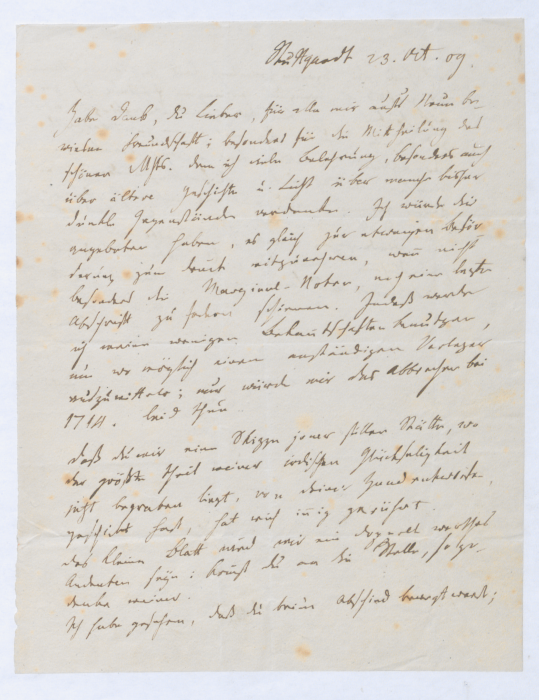 Stuttgardt 23. Oct. 09.
Habe Dank, du Lieber, für alle mir aufs Neue be-
wiesene Freundschaft; besonders für die Mittheilung des
schönen Msts. dem ich viele Belehrung, besonders auch
über ältere Geschichte u. Licht über manche bisher
dunkle Gegenstände verdanke. Ich würde dir
angeboten haben, es gleich zur etwanigen Beför-
derung zum Druck mitzunehmen, wenn nicht
besonders die Marginal-Noten, noch eine letzte
Abschrift zu fodern schienen. Indeß werde
ich meine wenigen Bekanntschaften benutzen,
um wo möglich einen anständigen Verleger
auszumitteln; nur würde mir das Abbrechen bei
1714. leid thun.
Daß du mir eine Skizze jener stillen Stätte, wo
der größte Theil meiner irdischen Glückseligkeit
jetzt begraben liegt, von deiner Hand entworfen,
geschickt hast, hat mich innig gerührt.
das kleine Blatt wird mir ein doppelt werthes
Andenken seyn: kömst du an die Stelle, so ge-
denke meiner.
Ich habe gesehen, daß du beim Abschied bewegt warst;